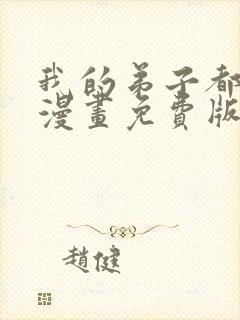 我的弟子都
漫畫免費版
趙健